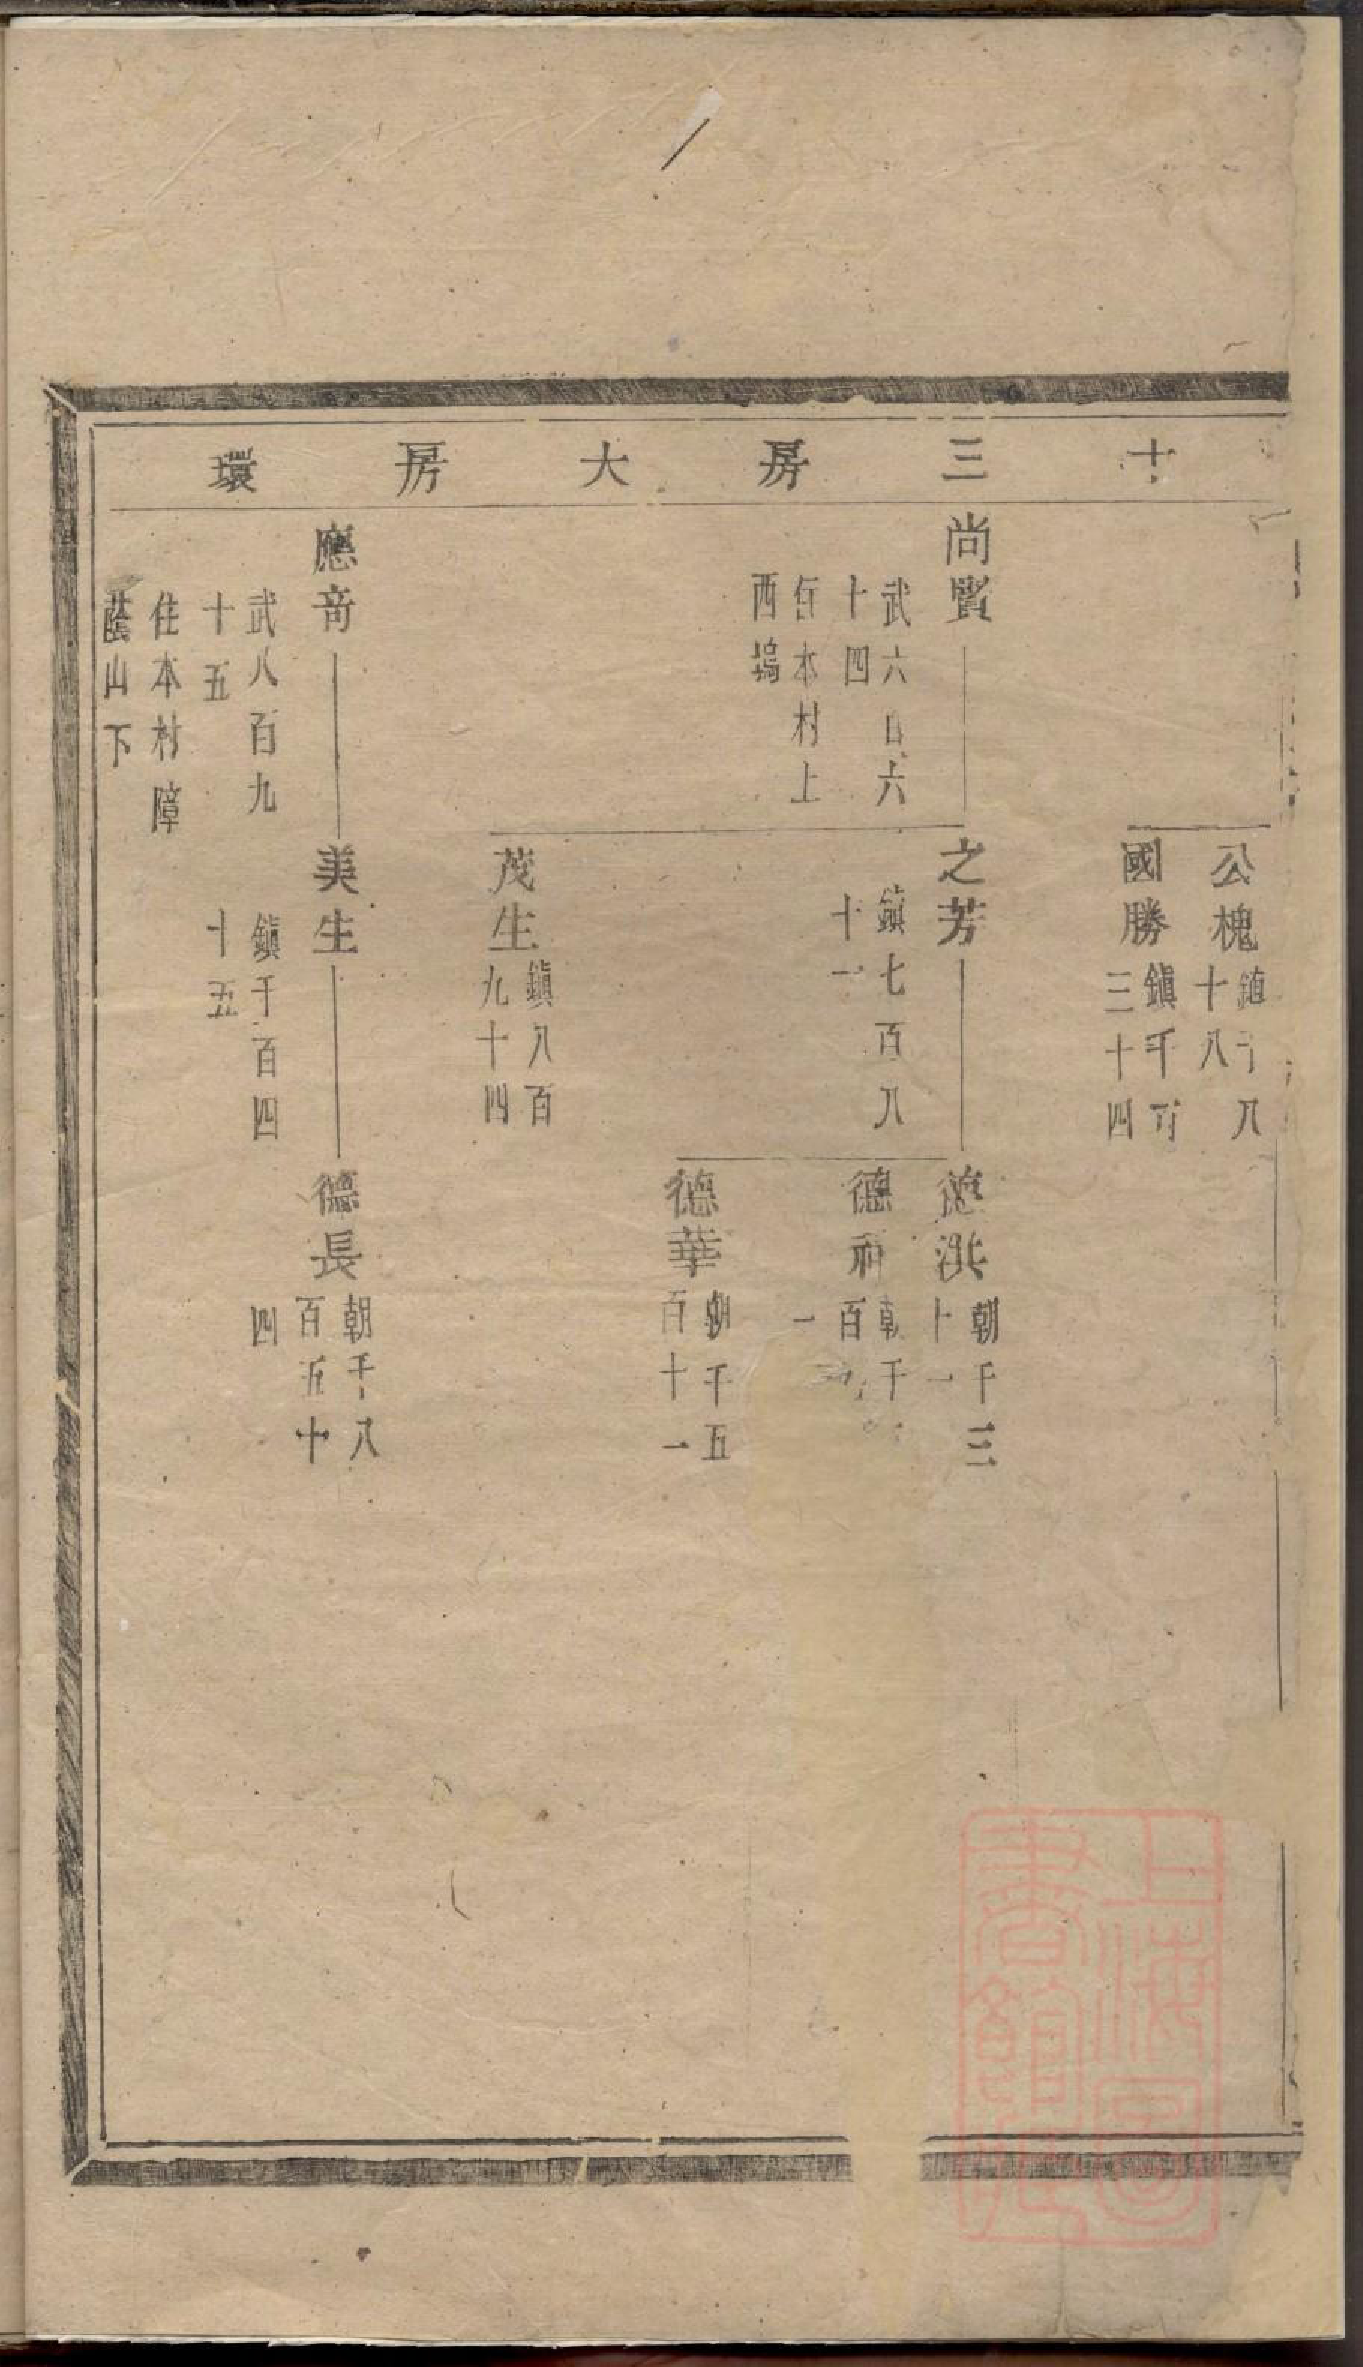 十三房大房環
公槐
十八
國勝
鎮千百
三十四
尚賢
武六百六
十四
住本村上
西塢
之芳
鎮七百八
十一
德洪
朝千三
十一
德
百
一
德華
朝千五
百十一
茂生
鎮八百
九十四
應奇
武八百九
十五
住本村障
蔭山下
美生
鎮千百四
十五
德長
朝千八
百五十
四
上海圖
書館藏